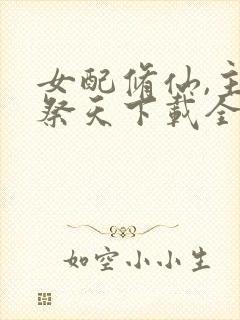 女配修仙,主
祭天下载全
如空小小生